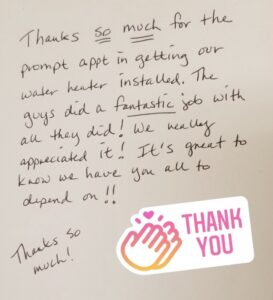 Thanks so much for the
prompt appt in getting our
water heater installed. The
guys did a fantastic job with
all they did! We really
appreciated it! It's great to
know we have you all to
depend on!!
Thanks so
much!
THANK
YOU